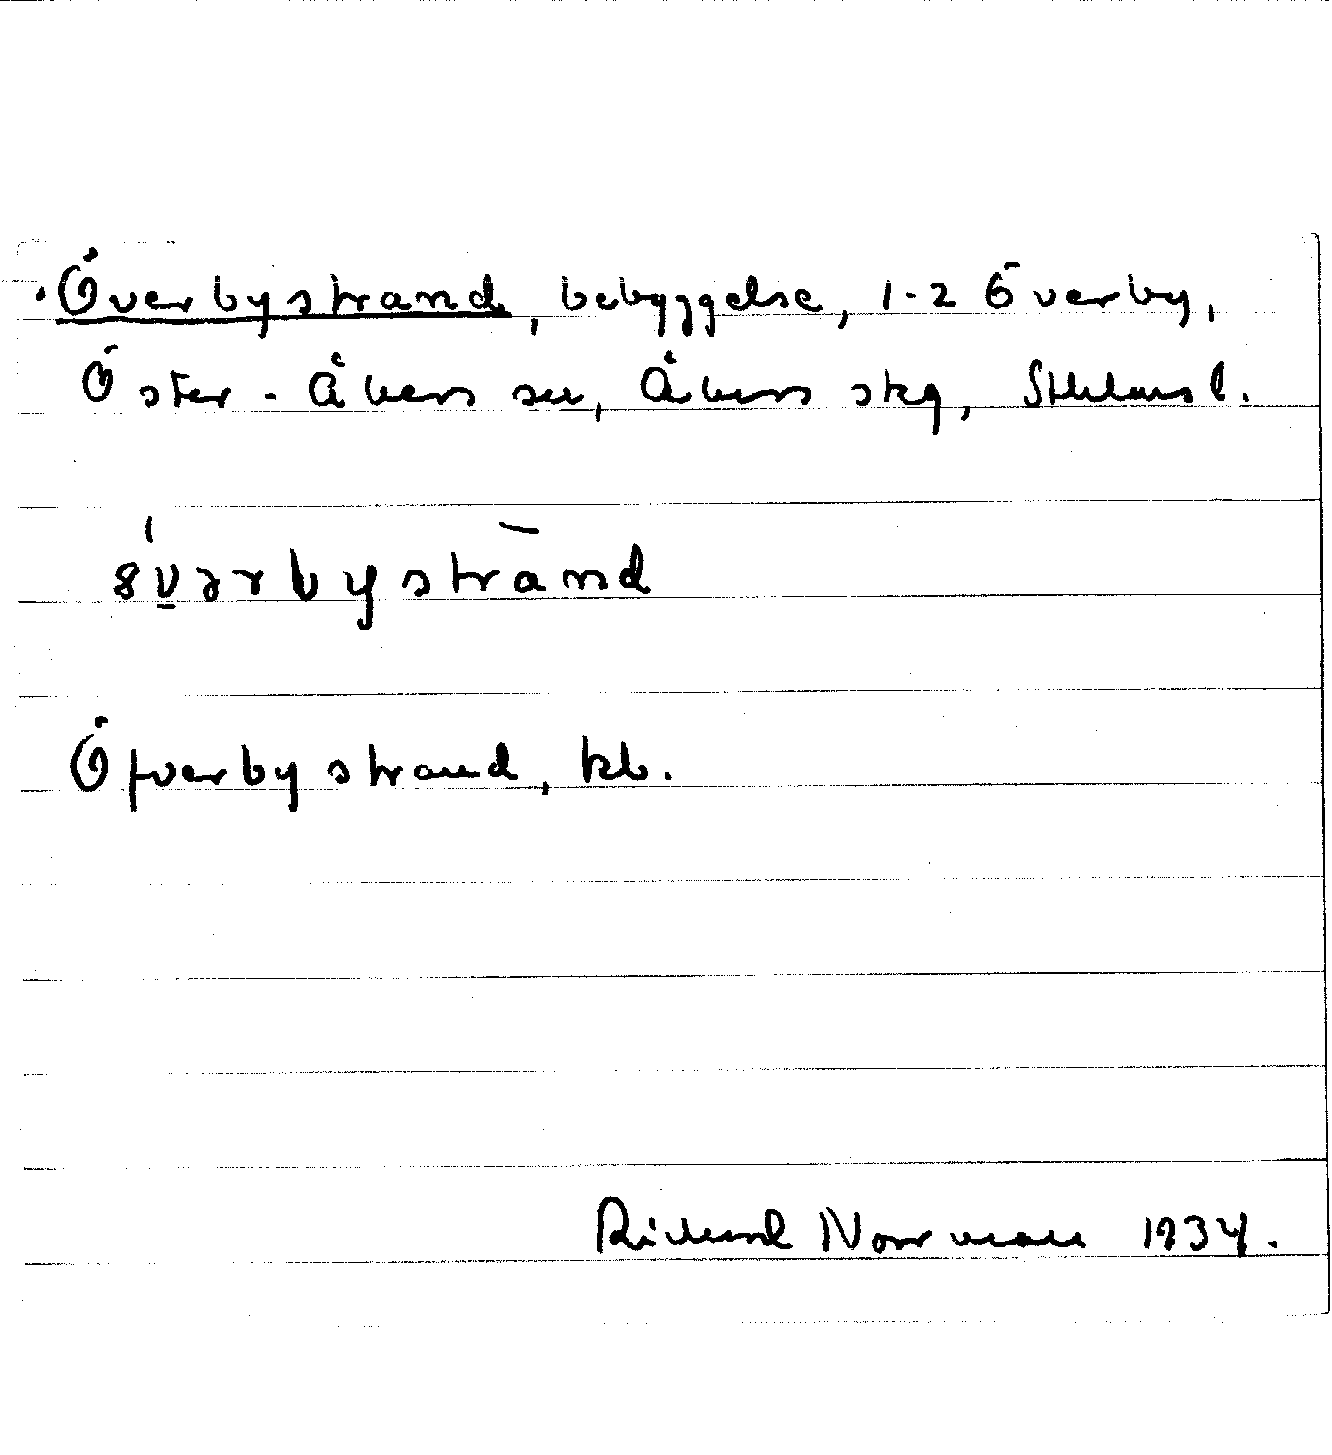 Överbystrand, bebyggelse, 1-2 Överby,
Öster-Åkers sn, Åkers skg, Sthlms l.
8́v̱ərbystrānd
Öfverbystrand, kb.
Rickard Norrman 1934.